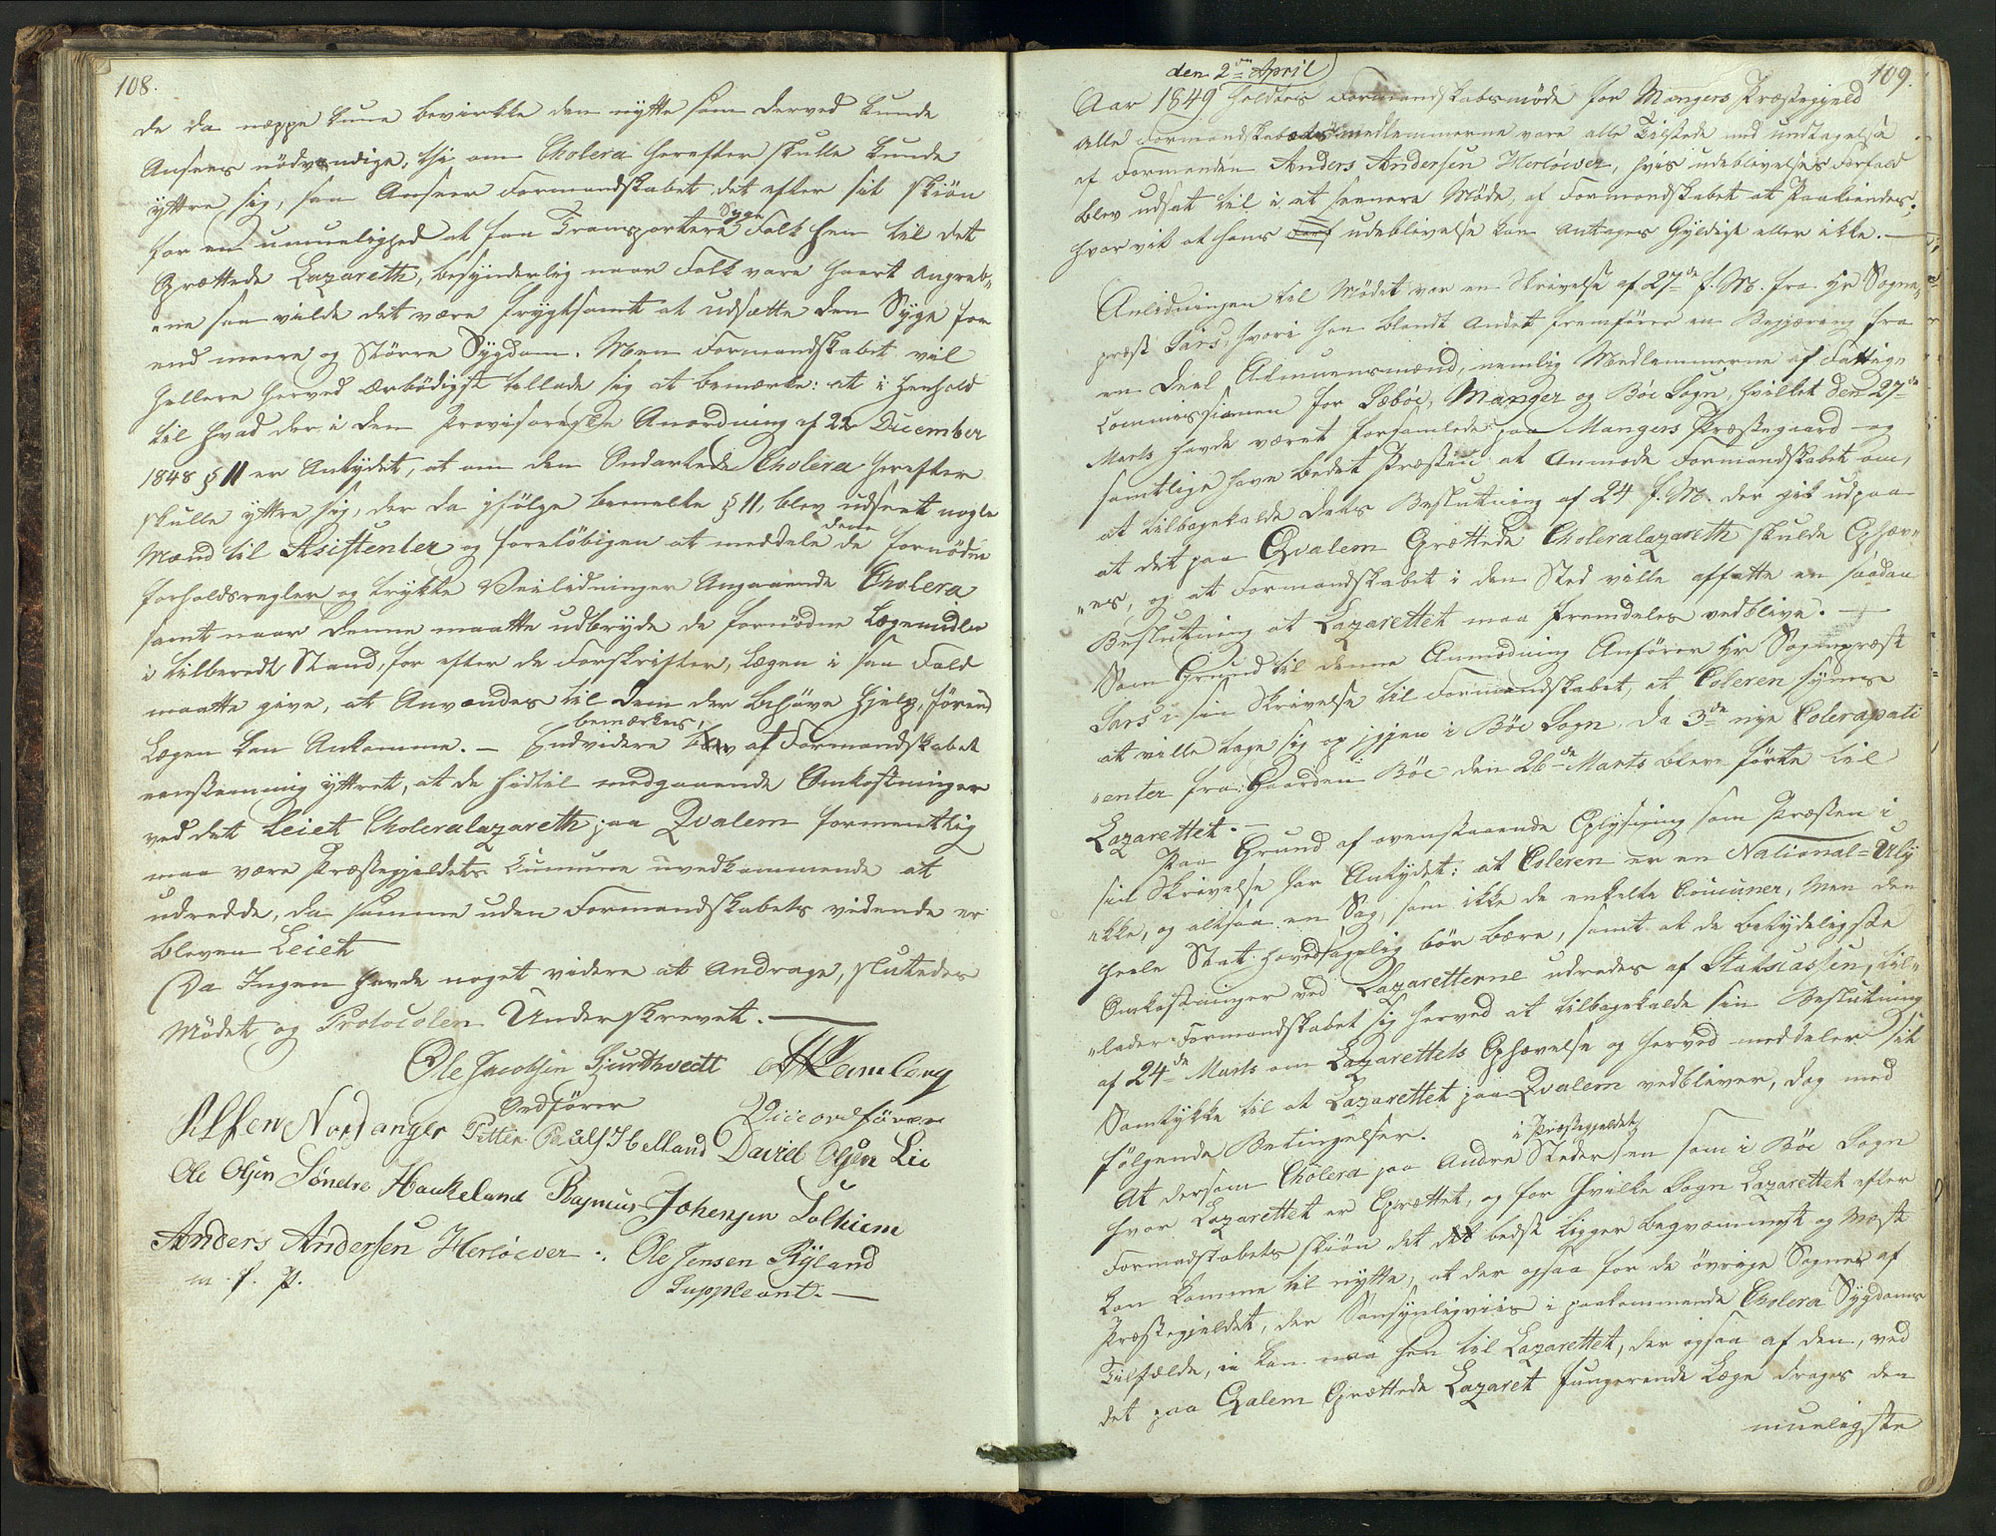 108.
de da neppe kune bevirkke den nytte som derved kunde
Ansees nödvendige, thi om Cholera herefter skulle kunde
yttre sig, saa Anseer Formandskabet det efter sit skiön
for en umuelighed at faa Transportere Syge Folk hen til det
Oprættede Lazareth, besynderlig naar Folk vare haart Angreb„
„ne saa vilde det være frygtsomt at udsætte den Syge for
end meere og Större Sygdom. Men Formandskabet vil
hellere herved ærbödigst tillade sig at bemærke: at i Henhold
til hvad der i den Provisoriske Anordning af 22 December
1848 § 11 er Antydet, at om den Ondartede Cholera herefter
skulle yttre sig, der da ifölge bemelte § 11, blev udseet nogle
Mænd til Asistenter og forelöbigen at meddele dem de fornödne
forholdsregler og trykte Veiledninger Angaaende Cholera
samt naar denne maatte udbryde de fornödne Lægemidler
i tilberedt Stand, for efter de Forskrifter, Lægen i saa Fald
maatte give, at Anvændes til dem der behöve Hjelp, förend
Lægen kan Ankomme. – Endvidere bemærkes, blev af Formandskabet
eenstemmig yttret, at de hidtil medgaaende Omkostninger
ved det Leiet Choleralazareth paa Qvalem formentlig
maa være Præstegjeldets Cumune uvedkommende at
udredde, da samme uden Formandskabets vidende er
bleven Leiet
Da Ingen havde noget videre at Andrage, sluttedes
Mödet og Protocolen Underskrevet. —
Ole Jacobsen Hjurthvedt A Ramberg
Ordförer Viceordförer
Alfsen Nordanger Petter Pauls Helland David Olsen Lie
Ole Olsen Söndre Haukeland Rasmus Johensen Solhiem
Anders Andersen Herlöever . Ole Jensen Ryland
m. f. P. Suppleant. —
109.
den 2den April
Aar 1849 holdtes Formandskabsmöde for Mangers Præstegjeld
Alle Formandskabsmedlemmerne vare alle Tilstede med undtagelse
af Formanden Anders Andersen Herlöever, hvis udeblivelses Forfald
blev udsat til i et senere Möde, af Formandskabet at Paakiendes,
hvorvit at hans Forf udeblivelse kan Antages Gyldige eller ikke. —
Anledningen til Mödet var en Skrivelse af 27de f. M. fra Hr Sogne„
præst Sars, hvori han blandt Andet fremförer en Begjæring fra
en Deel Almuesmænd, nemlig Medlemmerne af Fattig„
Commissionen for Sæböe, Manger og Böe Sogn, hvilket den 27de
Marts havde været forsamlede paa Mangers Præstegaard og
samtlige have bedet Præsten at Anmode Formandskabet om,
at tilbagekalde dets Beslutning af 24 f. M. der gik udpaa
at det paa Qvalem Oprettede Choleralazareth skulde Ophæv„
„es, og at Formandskabet i den Sted ville affatte en saadan
Beslutning at Lazarettet maa fremdeles vedblive. —
Som Grund til denne Anmodning Anförer Hr Sognepræst
Sars i sin Skrivelse til Formandskabet, at Coleren synes
at ville tage sig op igjen i Böe Sogn, da 3de nye Colerapati
„enter fra Gaarden Böe den 26de Marts bleve förte til
Lazarettet. —
Paa Grund af ovenstaaende Oplysning som Præsten i
sin Skrivelse har Antydet: at Coleren er en National=Uly
„kke, og altsaa en Sag, som ikke de enkelte Comuner, Men den
heele Stat hovedsagelig bör bære, samt at de betydeligste
Omkostninger ved Lazaretterne udredes af Statscassen, til„
„lader Formandskabet sig herved at tilbagekalde sin Beslutning
af 24de Marts om Lazarettets Ophævelse og herved meddeler sit
Samtykke til at Lazarettet paa Qvalem vedbliver, dog med
fölgende Betingelser.
At dersom Cholera paa Andre Steder i Præstegjeldet, en som i Böe Sogn
hvor Lazarettet er Oprettet, og for hvilke Sogn Lazarettet efter
Formadskabets skiön det det bedst ligger begvemmest og Mest
kan komme til nytte, at der ogsaa for de övrige Sogne af
Præstegjeldet, der Sansynligviis i paakommende Cholera Sygdoms
Tilfælde, ei kan naa hen til Lazarettet, der ogsaa af den, ved
det paa Qvalem Oprettede Lazaret fungerende Læge drages den
mueligste